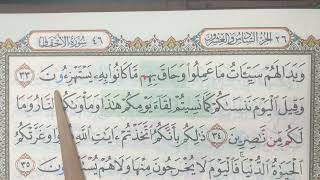 ٢٦ الجزء السادس والعشرون ٤٦ سورة الأحقاف
وَبَدَا لَهُمْ سَيِّـَٔاتُ مَا عَمِلُوا۟ وَحَاقَ بِهِم مَّا كَانُوا۟ بِهِۦ يَسْتَهْزِءُونَ ٣٣
وَقِيلَ ٱلْيَوْمَ نَنسَىٰكُمْ كَمَا نَسِيتُمْ لِقَآءَ يَوْمِكُمْ هَٰذَا وَمَأْوَىٰكُمُ ٱلنَّارُ وَمَا
لَكُم مِّن نَّٰصِرِينَ ٣٤ ذَٰلِكُم بِأَنَّكُمُ ٱتَّخَذْتُمْ ءَايَٰتِ ٱللَّهِ هُزُوًا وَغَرَّتْكُمُ
ٱلْحَيَوٰةُ ٱلدُّنْيَا فَٱلْيَوْمَ لَا يُخْرَجُونَ مِنْهَا وَلَا هُمْ يُسْتَعْتَبُونَ ٣٥